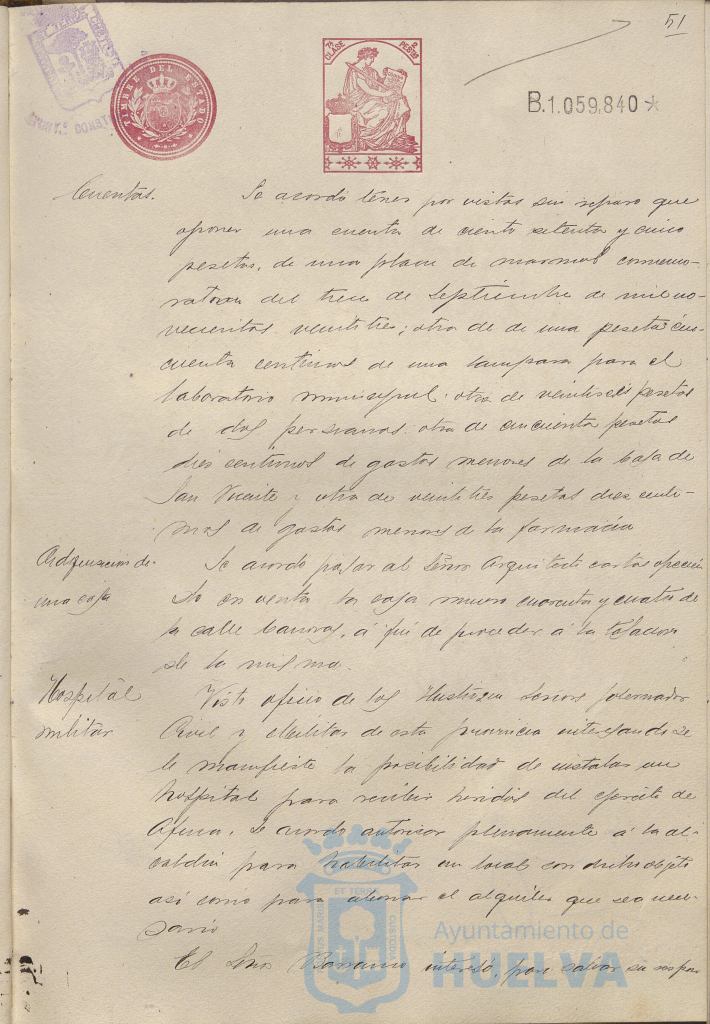 51
TIMBRE DEL ESTADO
7ª CLASE
2 PESTAS
B.1.059.840*
Cuentas. Se acordó tener por vistas sin reparo que
oponer una cuenta de ciento setenta y cinco
pesetas, de una placa de marmol conmemo-
rativa del trece de Septiembre de mil no-
vecientos veintitres; otra de de una peseta cin-
cuenta centimos de una lampara para el
laboratorio municipal: otra de veintiseis pesetas
de dos persianas: otra de cincuenta pesetas
diez centimos de gastos menores de la Casa de
San Vicente y otra de veintitres pesetas diez centi-
mos de gastos menores de la farmacia
Adquisicion de Se acordó pasar al Señor Arquitecto carta ofrecien
una casa do en venta la casa numero cuarenta y cuatro de
la calle Canovas, á fin de proceder á la tasacion
de la misma.
Hospital Visto oficio de los Señores Gobernador
militar Civil y Militar de esta provincia interesando se
le manifieste la posibilidad de instalar un
hospital para recibir heridos del ejercito de
Africa, se acordó autorizar plenamente á la al-
caldia para habilitar un local con dicho objeto
asi como para abonar el alquiler que sea nece-
sario
El Señor Barranco interesó, para salvar su respon
ET TERRA
PORTUS MARIS
CUSTODIA
Ayuntamiento de
HUELVA